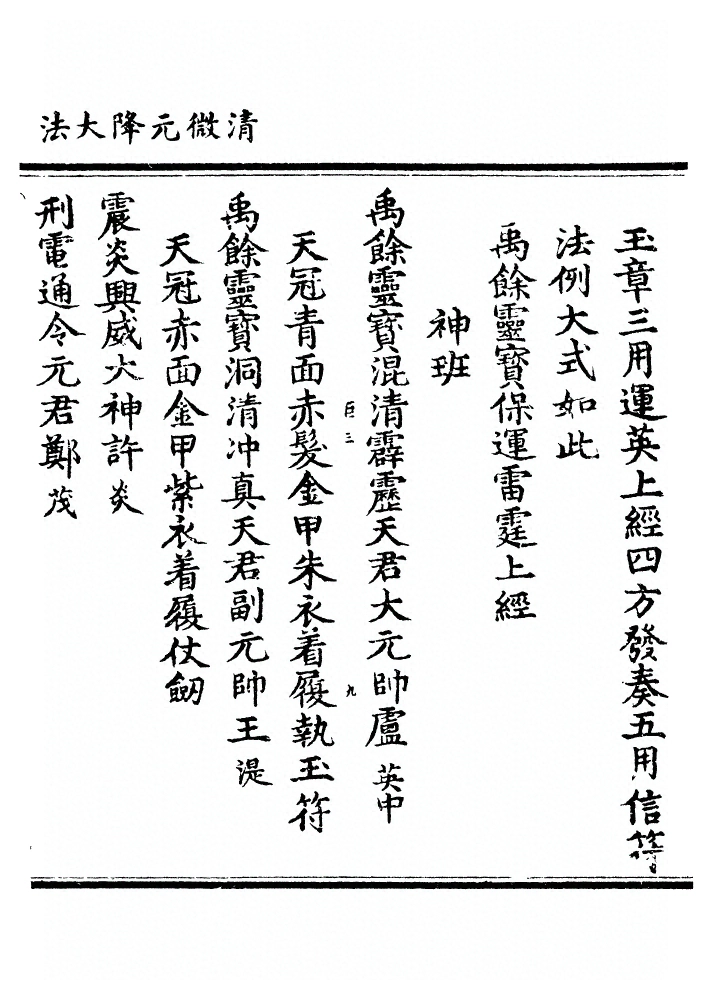 清微元降大法
玉章三用運英上經四方發奏五用信符
法例大式如此
禹餘靈寶保運雷霆上經
神班
禹餘靈寶混清霹靂天君大元帥盧英中
天冠青面赤髮金甲朱衣着履執玉符
禹餘靈寶洞清冲真天君副元帥王湜
天冠赤面金甲紫衣着履仗劒
震炎興威大神許炎
刑電通令元君鄭茂
三
九